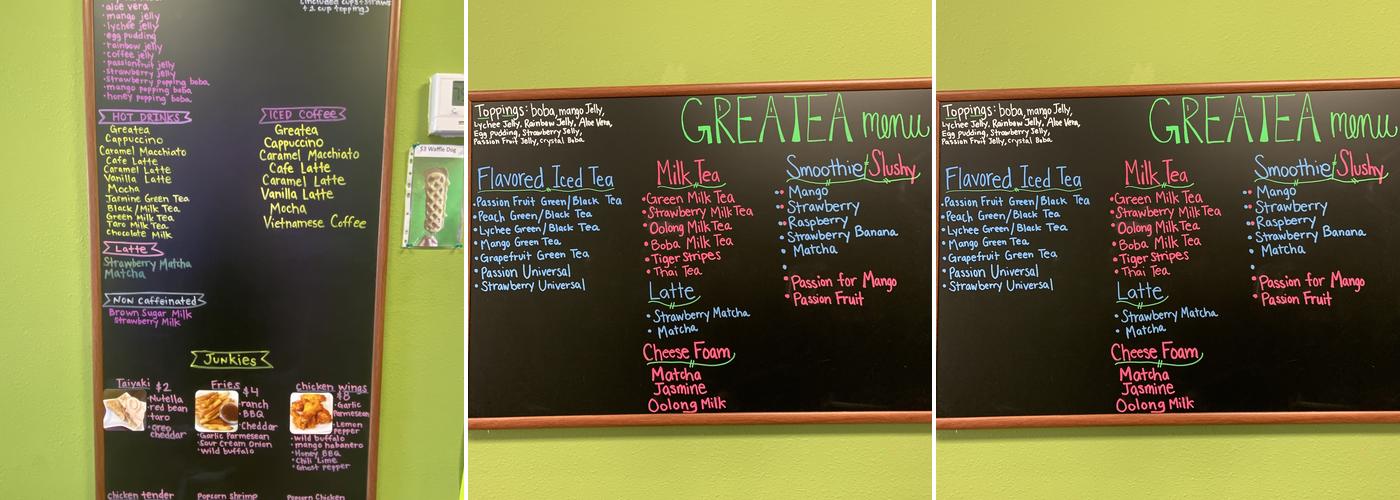 (included cups+straws
+1 cup topping)
• aloe vera
• mango jelly
• lychee jelly
• egg pudding
• rainbow jelly
• coffee jelly
• passionfruit jelly
• strawberry jelly
• strawberry popping boba
• mango popping boba
• honey popping boba
HOT DRINKS
Greatea
Cappuccino
Caramel Macchiato
Cafe Latte
Caramel Latte
Vanilla Latte
Mocha
Jasmine Green Tea
Black/Milk Tea
Green Milk Tea
Taro Milk Tea
Chocolate Milk
Latte
Strawberry Matcha
Matcha
Non Caffeinated
Brown Sugar Milk
Strawberry Milk
ICED COFFEE
Greatea
Cappuccino
Caramel Macchiato
Cafe Latte
Caramel Latte
Vanilla Latte
Mocha
Vietnamese Coffee
$3 Waffle Dog
Junkies
Taiyaki $2
• Nutella
• red bean
• taro
• oreo
cheddar
Fries $4
• ranch
• BBQ
• Cheddar
• Garlic Parmesean
• Sour Cream Onion
• Wild buffalo
chicken wings
$8
• Garlic
Parmesean
• Lemon
Pepper
• wild buffalo
• mango habanero
• Honey BBQ
• Chili Lime
• Ghost pepper
chicken tender
Popcorn shrimp
Popcorn Chicken
Toppings: boba, mango Jelly,
Lychee Jelly, Rainbow Jelly, Aloe Vera,
Egg pudding, Strawberry Jelly,
Passion Fruit Jelly, crystal Boba
GREATEA menu
Flavored Iced Tea
• Passion Fruit Green/Black Tea
• Peach Green/Black Tea
• Lychee Green/Black Tea
• Mango Green Tea
• Grapefruit Green Tea
• Passion Universal
• Strawberry Universal
Milk Tea
• Green Milk Tea
• Strawberry Milk Tea
• Oolong Milk Tea
• Boba Milk Tea
• Tiger Stripes
• Thai Tea
Latte
• Strawberry Matcha
• Matcha
Cheese Foam
Matcha
Jasmine
Oolong Milk
Smoothie/Slushy
• Mango
• Strawberry
• Raspberry
• Strawberry Banana
• Matcha
•
• Passion for Mango
• Passion Fruit
Toppings: boba, mango Jelly,
Lychee Jelly, Rainbow Jelly, Aloe Vera,
Egg pudding, Strawberry Jelly,
Passion Fruit Jelly, crystal Boba
GREATEA menu
Flavored Iced Tea
• Passion Fruit Green/Black Tea
• Peach Green/Black Tea
• Lychee Green/Black Tea
• Mango Green Tea
• Grapefruit Green Tea
• Passion Universal
• Strawberry Universal
Milk Tea
• Green Milk Tea
• Strawberry Milk Tea
• Oolong Milk Tea
• Boba Milk Tea
• Tiger Stripes
• Thai Tea
Latte
• Strawberry Matcha
• Matcha
Cheese Foam
Matcha
Jasmine
Oolong Milk
Smoothie/Slushy
• Mango
• Strawberry
• Raspberry
• Strawberry Banana
• Matcha
•
• Passion for Mango
• Passion Fruit